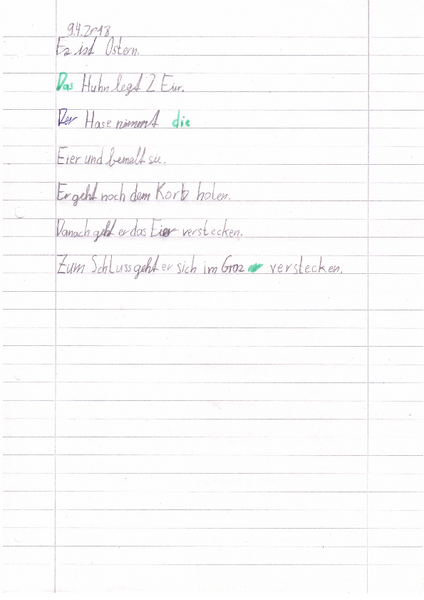 9.4.2018
Es ist Ostern.
Das Huhn legt 2 Eier.
Der Hase nimmt die
Eier und bemalt sie.
Er geht noch dem Korb holen.
Danach geht er das Eier verstecken.
Zum Schluss geht er sich im Graz verstecken.